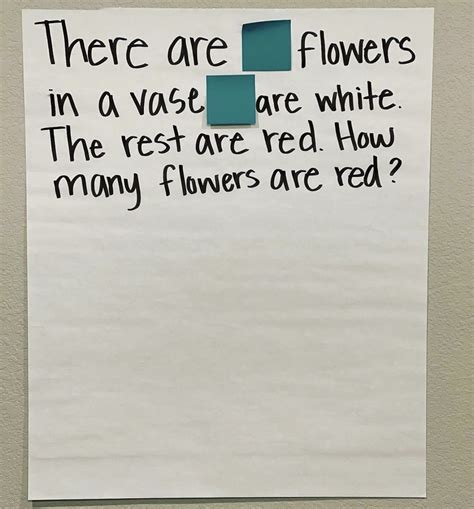 There are flowers
in a vase are white.
The rest are red. How
many flowers are red?